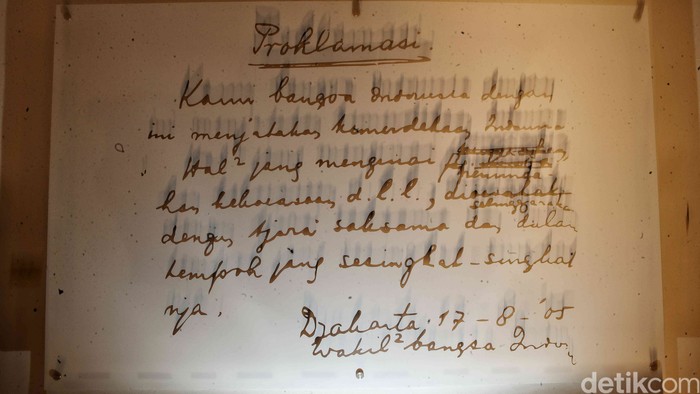 Proklamasi.
Kami bangsa Indonesia dengan
ini menjatakan kemerdekaan Indonesia.
Hal² jang mengenai
peminda
han kekoeasaan d.l.l.,
diselenggarakan
dengan tjara saksama dan dalam
tempoh jang sesingkat-singkat
nja.
Djakarta, 17-8-'05
Wakil² bangsa Indon
detikcom